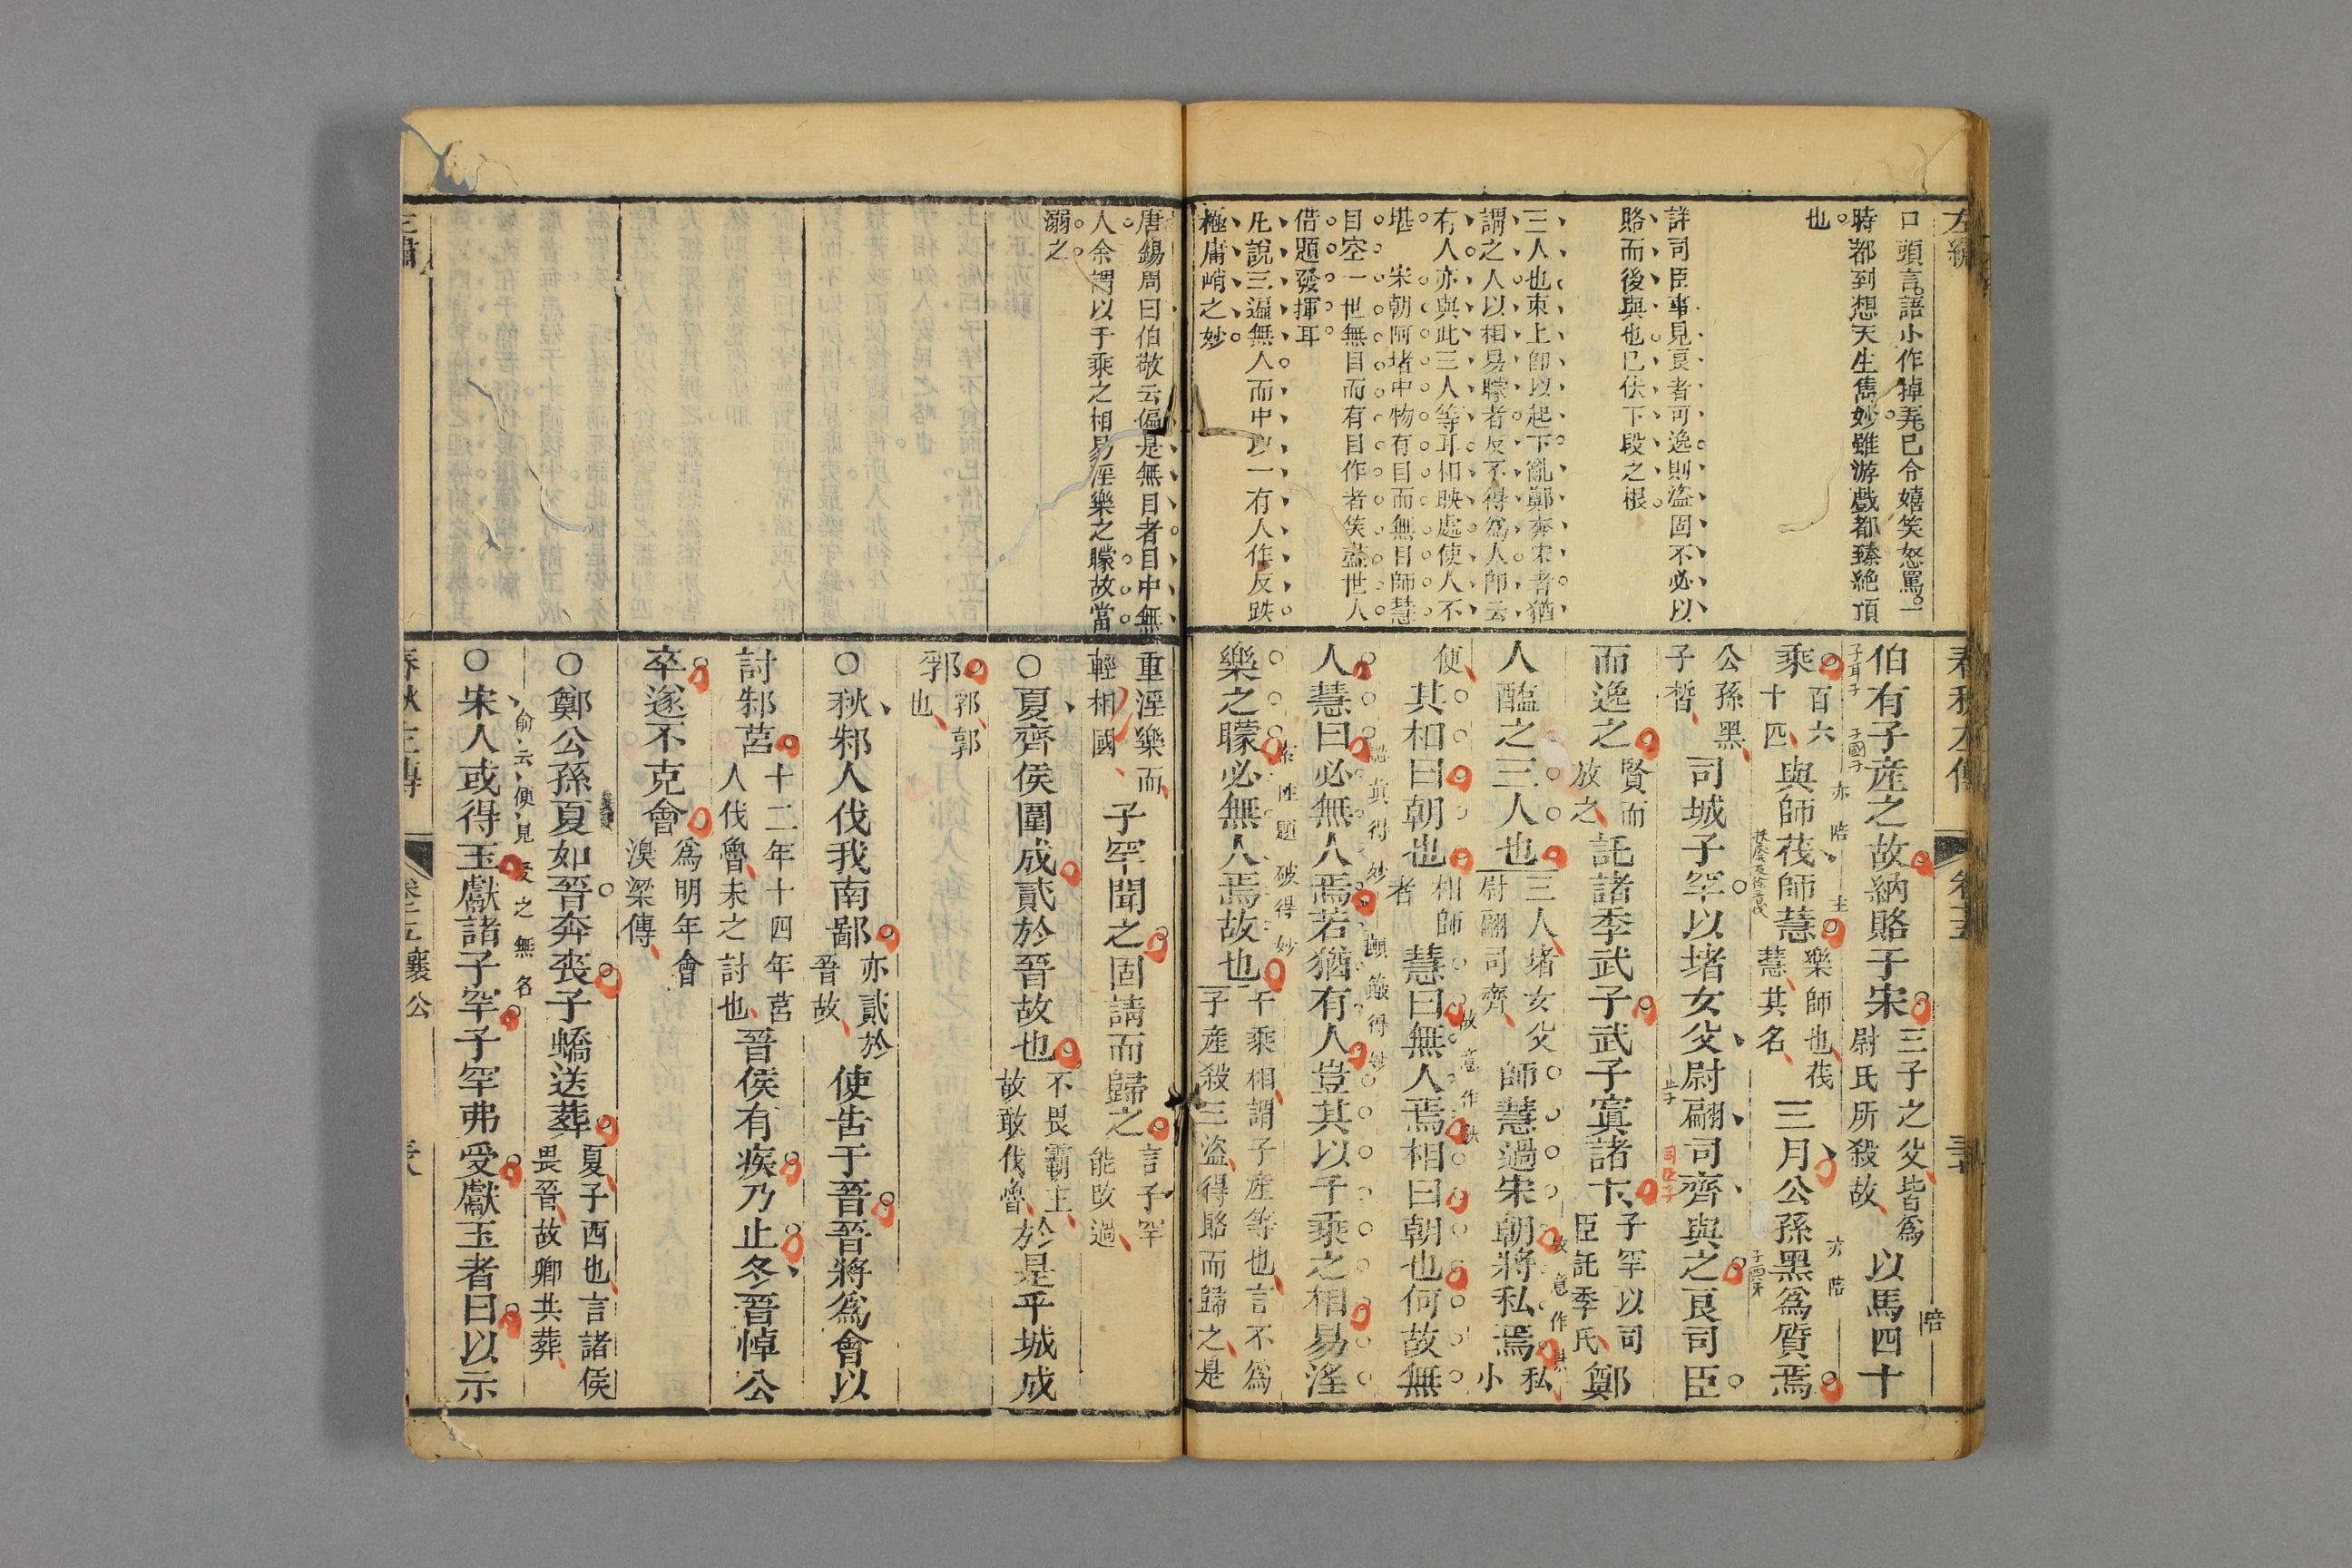 左繡
口頭言語小作掉弄已令嬉笑怒罵一
時都到想天生雋妙雖游戲都臻絶頂
也
詳司臣事見良者可逸則盜固不必以
賂而後與也已伏下段之根
三人也束上卽以起下亂鄭奔宋者猶
謂之人以相易矇者反不得爲人卽云
有人亦與此三人等耳相映處使人不
堪 宋朝阿堵中物有目而無目師慧
目空一世無目而有目作者笑盡世人
借題發揮耳
凡說三遍無人而中以一有人作反跌
極庸峭之妙
春秋左傳
伯有子產之故納賂于宋三子之父皆爲尉氏所殺故以馬四十
乘百六十四與師茷師慧樂師也茷慧其名三月公孫黑爲質焉
公孫黑子晳司城子罕以堵女父尉翩司齊與之良司臣
而逸之賢而放之託諸季武子武子寘諸卞子罕以司臣託季氏鄭
人醢之三人也三人堵女父尉翩司齊師慧過宋朝將私焉私小
便其相曰朝也相師者慧曰無人焉相曰朝也何故無
人慧曰必無人焉若猶有人豈其以千乘之相易淫
樂之矇必無人焉故也千乘相謂子產等也言不爲子產殺三盜得賂而歸之是
唐錫周曰伯敬云偏是無目者目中無
人余謂以千乘之相易淫樂之矇故當
溺之
重淫樂而輕相國子罕聞之固請而歸之言子罕能改過
○夏齊侯圍成貳於晉故也不畏霸主故敢伐魯於是乎城成
郛郛郭也
○秋邾人伐我南鄙亦貳於晉故使告于晉晉將爲會以
討邾莒十二年十四年莒人伐魯未之討也晉侯有疾乃止冬晉悼公
卒遂不克會爲明年會溴梁傳
○鄭公孫夏如晉奔喪子蟜送葬夏子西也言諸侯畏晉故卿共葬
○宋人或得玉獻諸子罕子罕弗受獻玉者曰以示